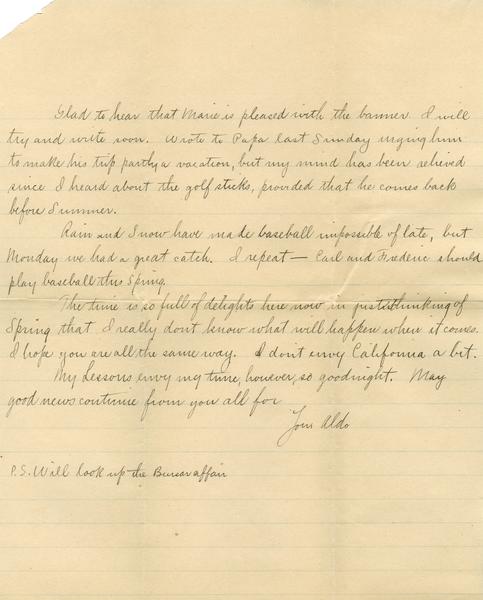 Glad to hear that Marie is pleased with the banner. I will
try and write soon. Wrote to Papa last Sunday urging him
to make his trip partly a vacation, but my mind has been relieved
since I heard about the golf sticks, provided that he comes back
before Summer.
Rain and Snow have made baseball impossible of late, but
Monday we had a great catch. I repeat — Carl and Frederic should
play baseball this Spring.
The time is so full of delights here now in just thinking of
Spring that I really don't know what will happen when it comes.
I hope you are all the same way. I don't envy California a bit.
My Lessons envy my time, however, so goodnight. May
good news continue from you all for
Your Aldo
P.S. Will look up the Bursar affair